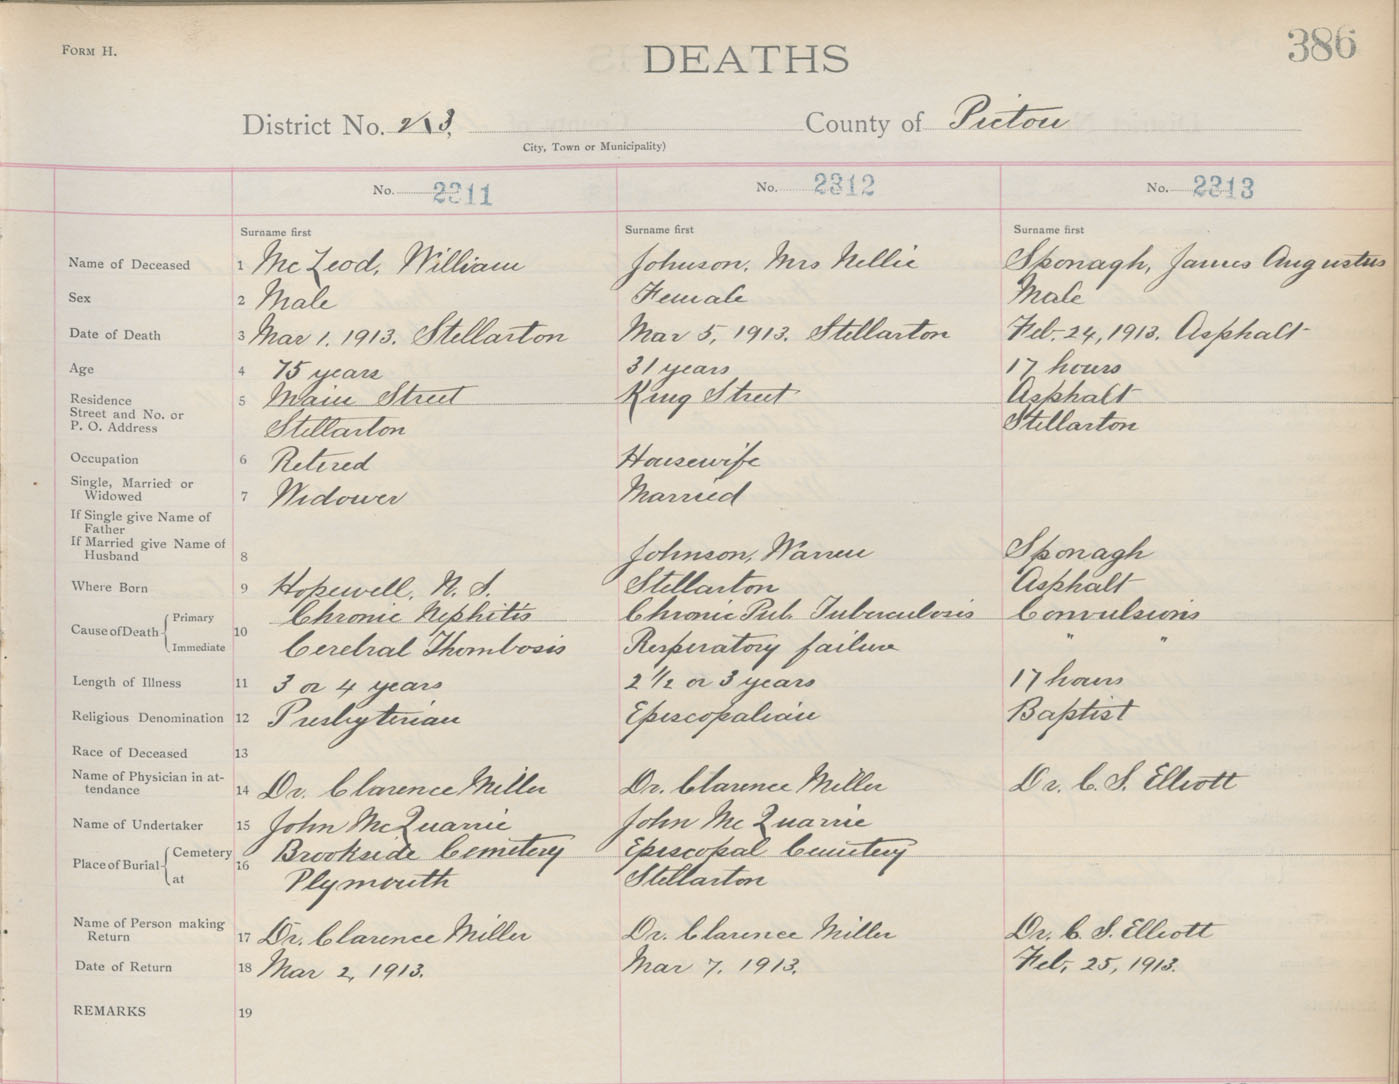 FORM H.
DEATHS
386
District No. 213, County of Pictou
City, Town or Municipality)
No. 2311 No. 2312 No. 2313
Surname first Surname first Surname first
Name of Deceased 1 McLeod, William Johnson, Mrs Nellie Sponagh, James Augustus
Sex 2 Male Female Male
Date of Death 3 Mar 1, 1913. Stellarton Mar 5, 1913. Stellarton Feb. 24, 1913. Asphalt
Age 4 75 years 31 years 17 hours
Residence 5 Main Street King Street Asphalt
Street and No. or
P. O. Address Stellarton Stellarton
Occupation 6 Retired Housewife
Single, Married or
Widowed 7 Widower Married
If Single give Name of
Father
If Married give Name of
Husband 8 Johnson, Warren Sponagh
Where Born 9 Hopewell, N. S. Stellarton Asphalt
Cause of Death Primary 10 Chronic Nephitis Chronic Pul. Tuberculosis Convulsions
Immediate Cerebral Thombosis Resperatory failure " "
Length of Illness 11 3 or 4 years 2 1/2 or 3 years 17 hours
Religious Denomination 12 Presbyterian Episcopalian Baptist
Race of Deceased 13
Name of Physician in at-
tendance 14 Dr. Clarence Miller Dr. Clarence Miller Dr. C. S. Elliott
Name of Undertaker 15 John McQuarrie John McQuarrie
Place of Burial Cemetery 16 Brookside Cemetery Episcopal Cemetery
at Plymouth Stellarton
Name of Person making
Return 17 Dr. Clarence Miller Dr. Clarence Miller Dr. C. S. Elliott
Date of Return 18 Mar 2, 1913. Mar 7, 1913. Feb, 25, 1913.
REMARKS 19